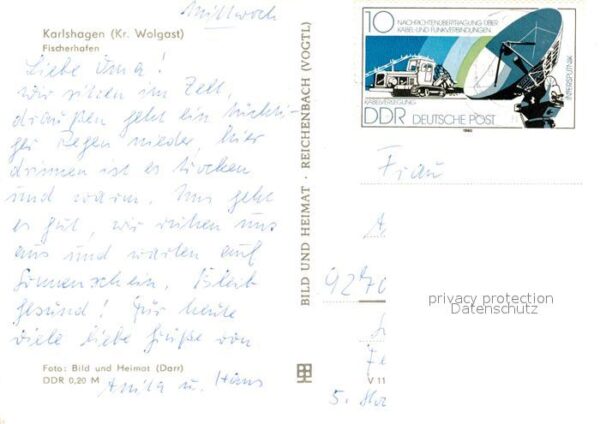 Mittwoch
Karlshagen (Kr. Wolgast)
Fischerhafen
Liebe Oma!
Wir sitzen im Zelt,
draußen geht ein tüchti-
ger Regen nieder, hier
drinnen ist es trocken
und warm. Uns geht
es gut, wir ruhen uns
aus und warten auf
Sonnenschein. Bleib
gesund! Für heute
viele liebe Grüße von
Anita u. Hans
Foto: Bild und Heimat (Darr)
DDR 0,20 M
BILD UND HEIMAT · REICHENBACH (VOGTL)
V 11
10
NACHRICHTENÜBERTRAGUNG ÜBER
KABEL- UND FUNKVERBINDUNGEN
KABELVERLEGUNG
INTERSPUTNIK
DDR DEUTSCHE POST
1980
Frau
9270
5.
privacy protection
Datenschutz